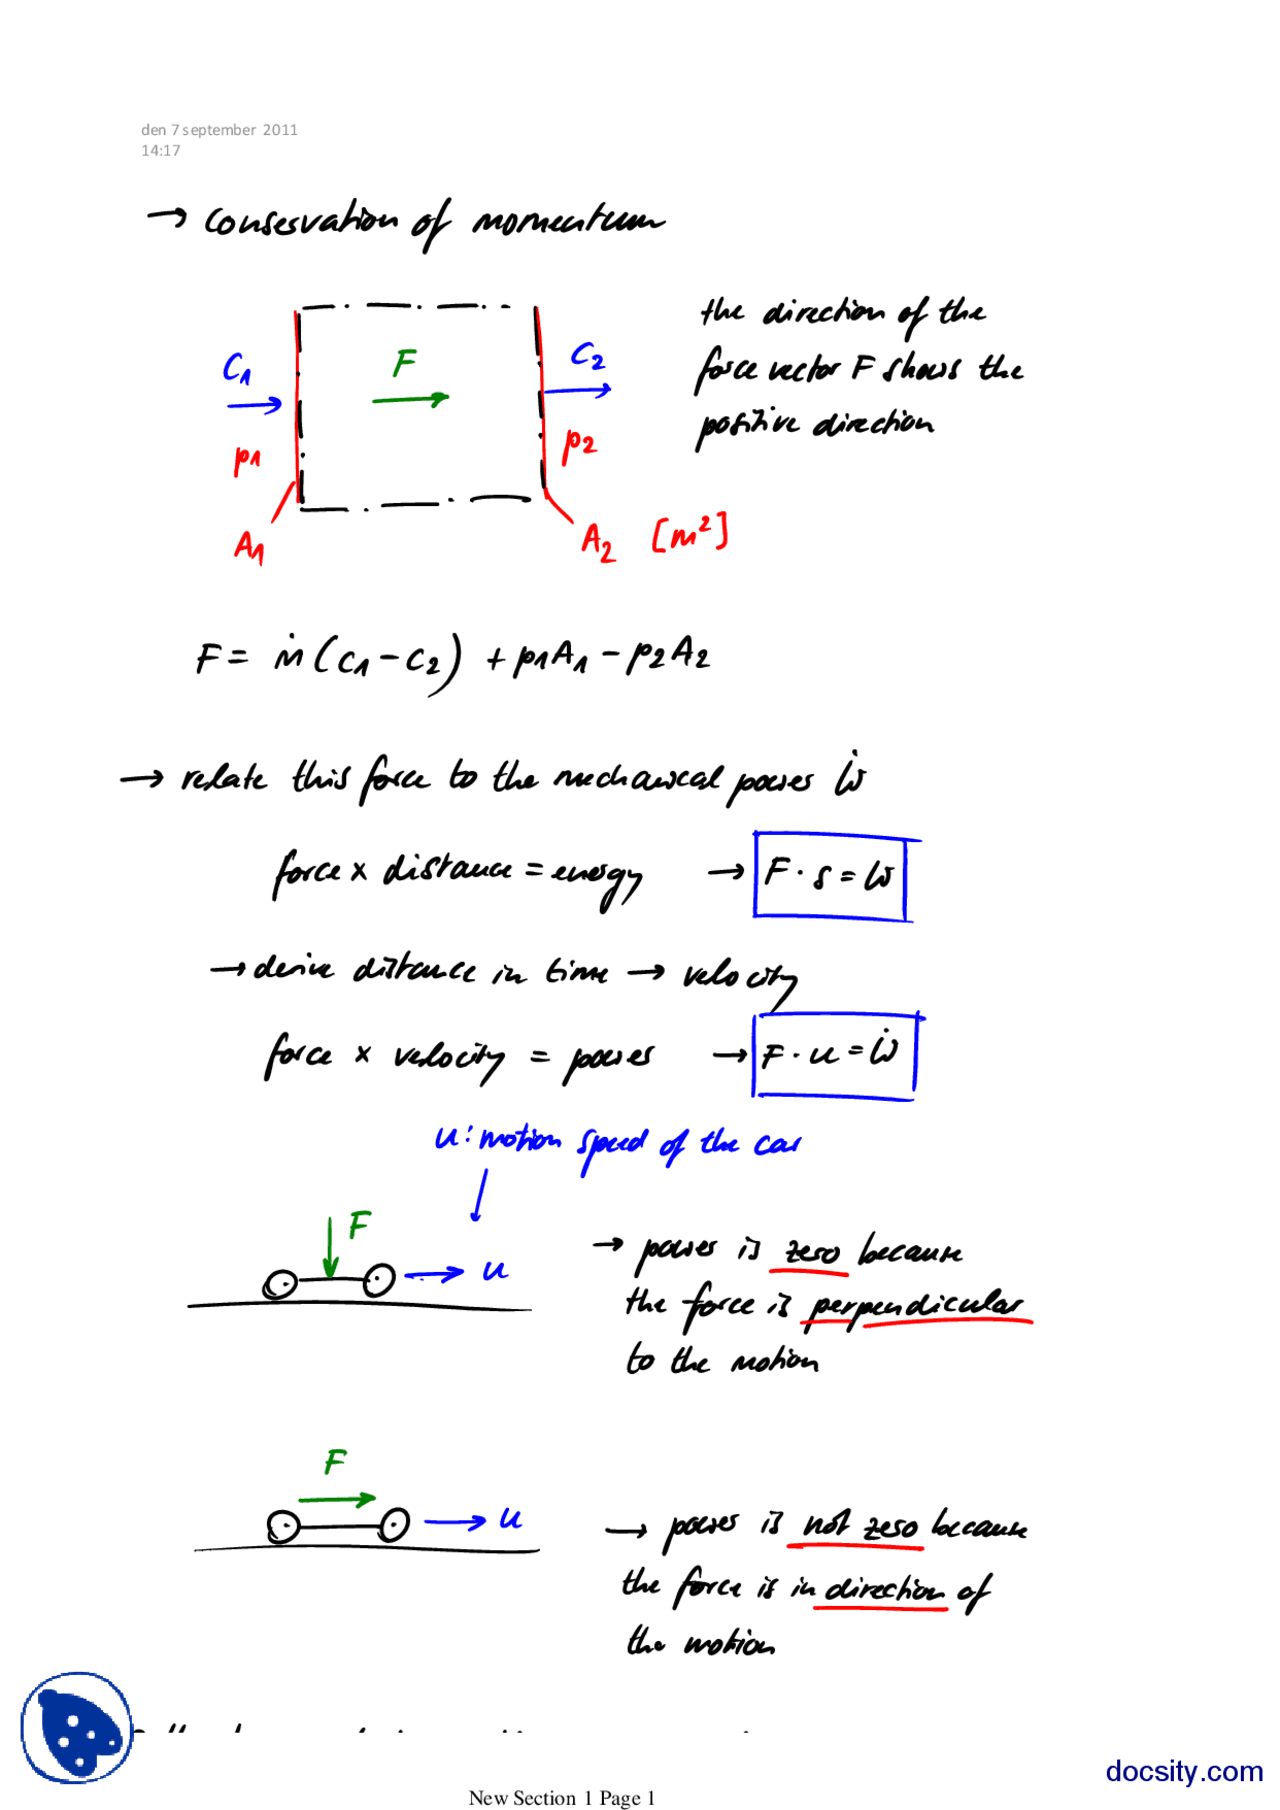 den 7 september 2011
14:17
→ conservation of momentum
the direction of the
force vector F shows the
positive direction
C1 F C2
p1 p2
A1 A2 [m²]
F = ṁ(c1 - c2) + p1A1 - p2A2
→ relate this force to the mechanical power Ẇ
force x distance = energy → F · s = W
→ derive distance in time → velocity
force x velocity = power → F · u = Ẇ
u: motion speed of the car
F
u
→ power is zero because
the force is perpendicular
to the motion
F
u
→ power is not zero because
the force is in direction of
the motion
docsity.com
New Section 1 Page 1